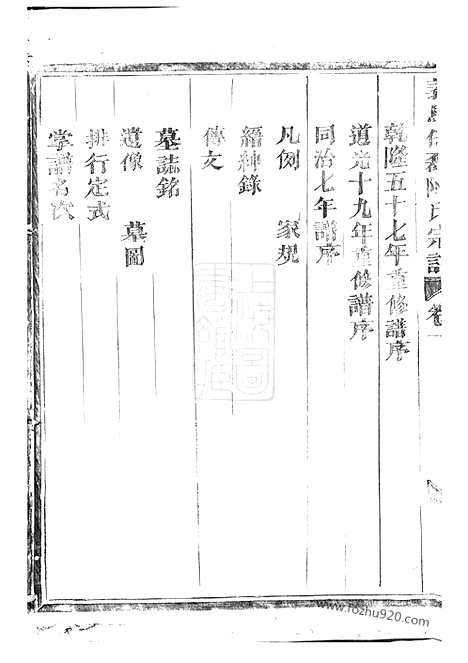 乾隆五十七年重修譜序
道光十九年重修譜序
同治七年譜序
凡例　家規
縉紳錄
傳文
墓誌銘
遺像　墓圖
排行定式
掌譜名次
陳氏宗譜
卷一
上海圖書館藏
www.rozhu920.com